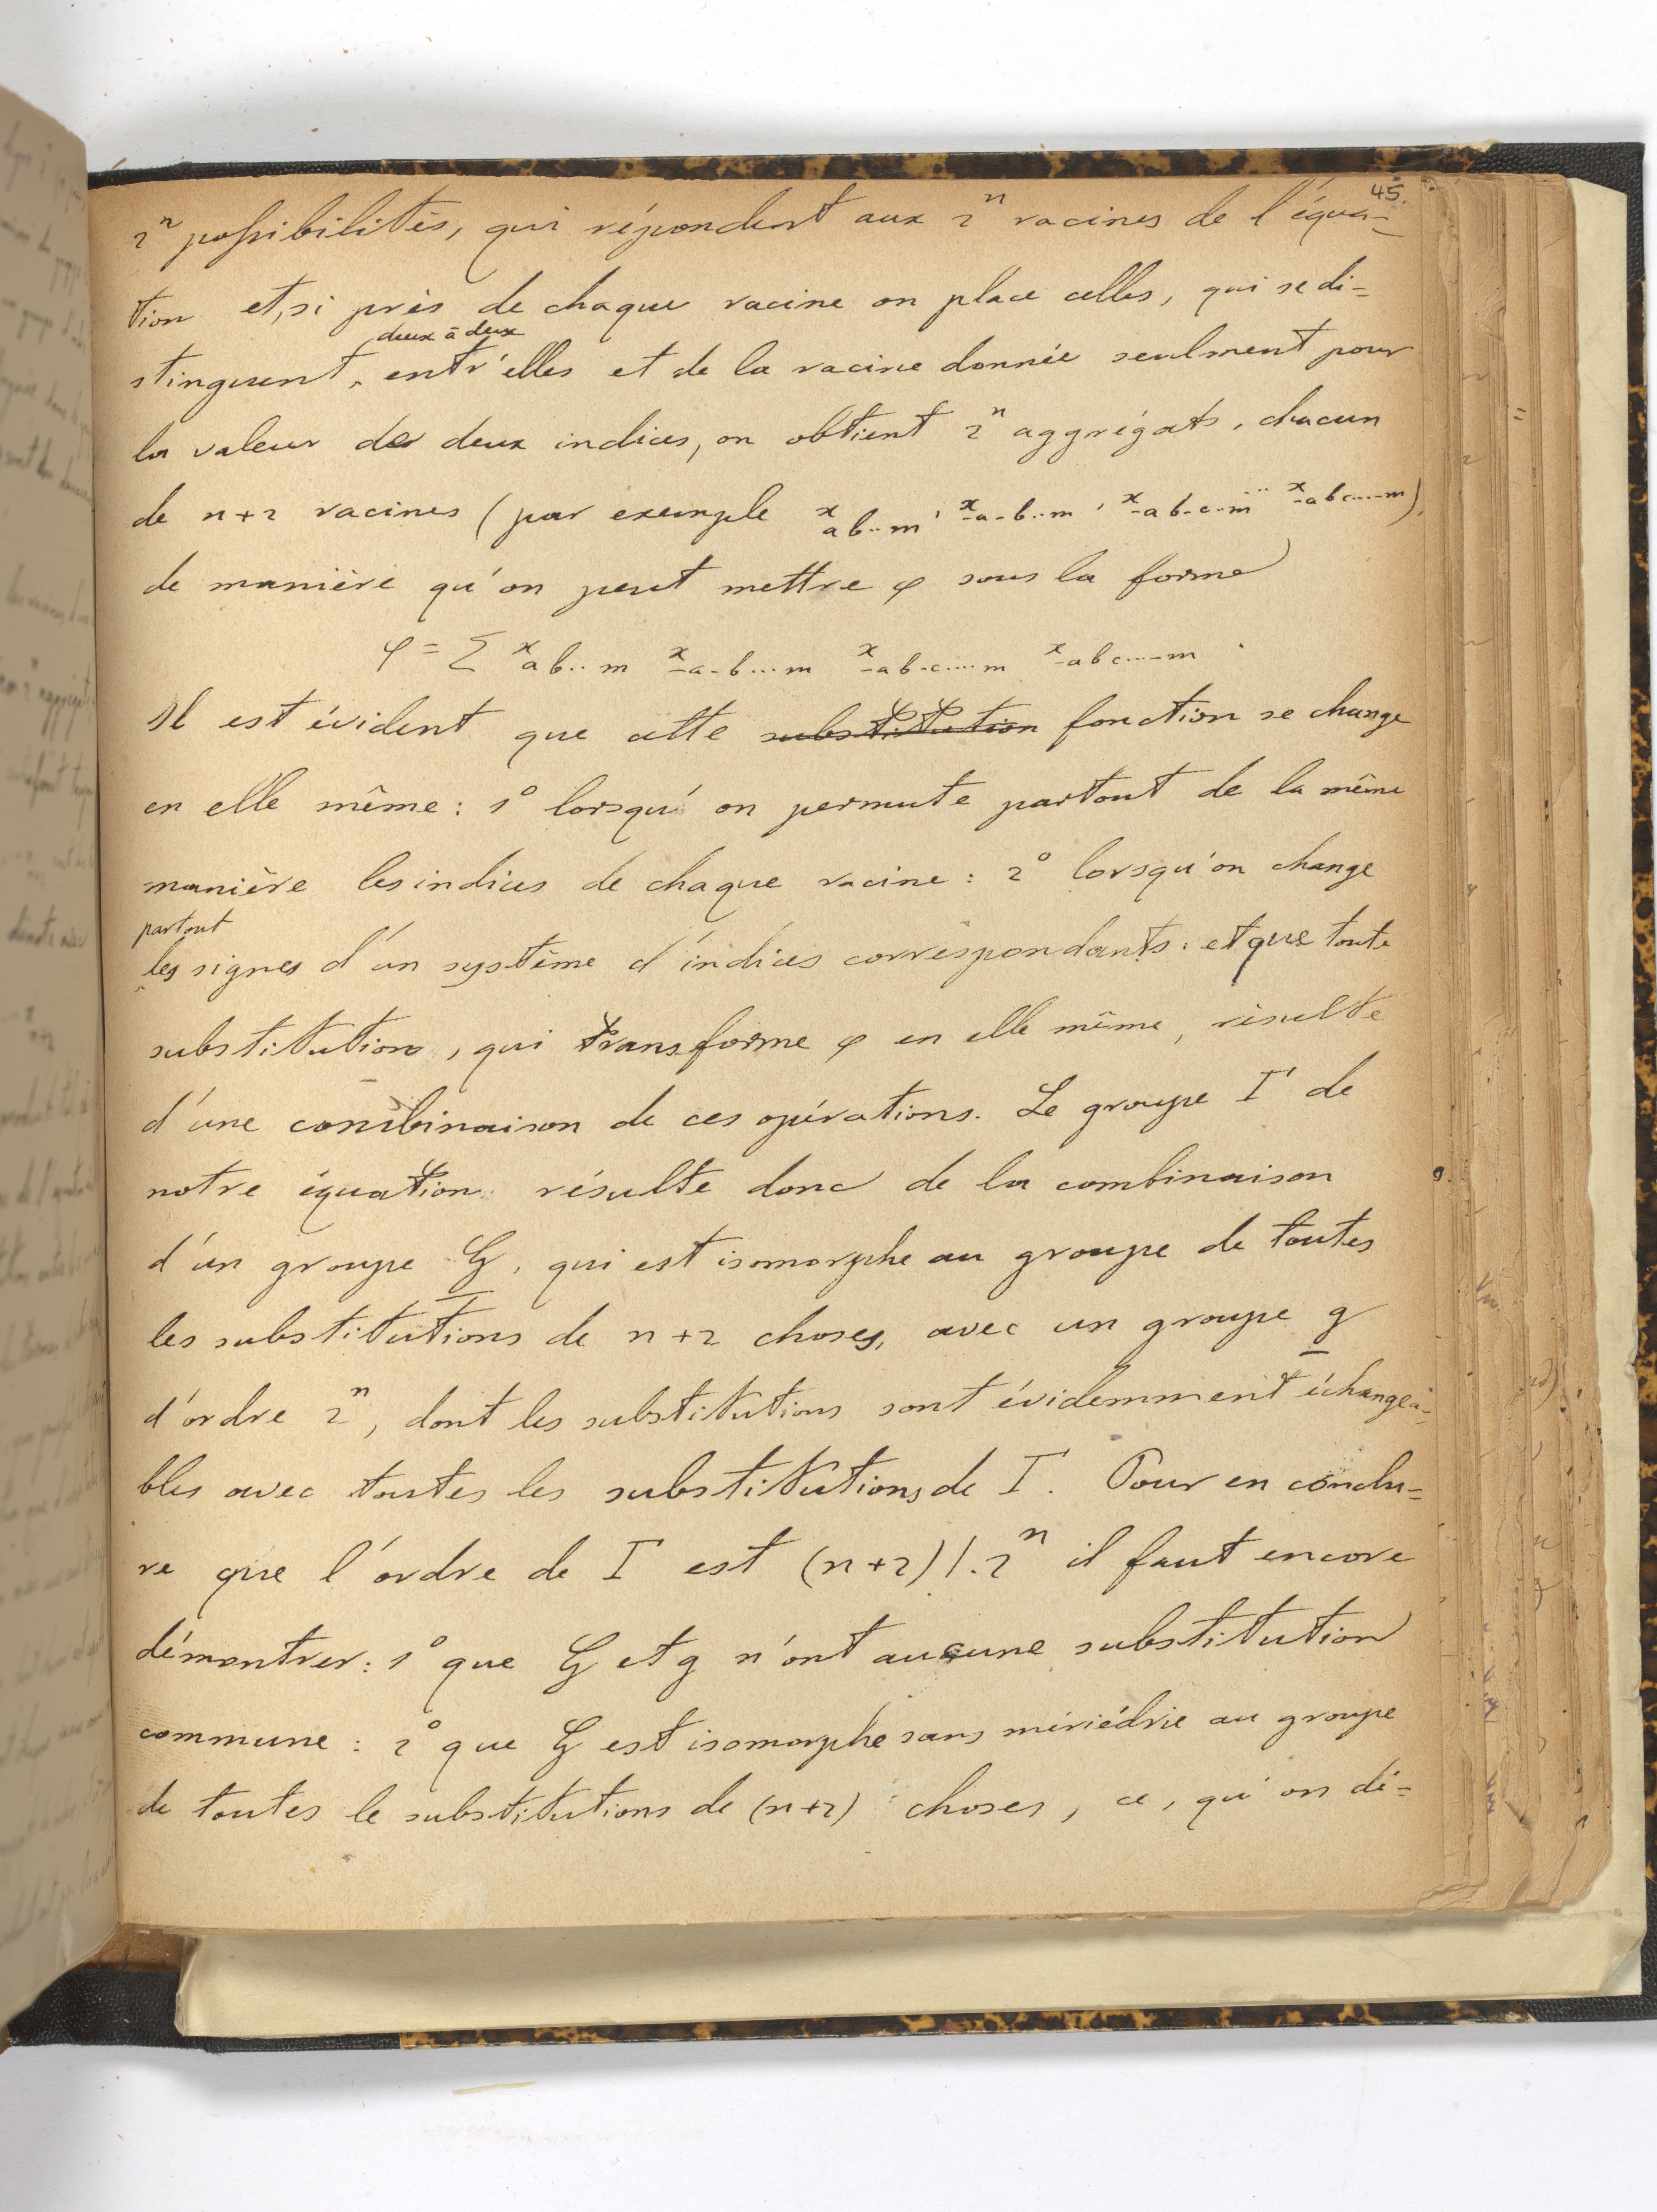 45.
2ⁿ possibilités, qui répondent aux 2ⁿ racines de l'équa=
tion et, si près de chaque racine on place celles, qui se di=
deux à deux
stinguent, entr'elles et de la racine donnée seulment pour
la valeur de deux indices, on obtient 2ⁿ aggrégats, chacun
de n+2 racines (par exemple x ab..m, x -a-b..m, x -ab-c..m .. x -abc....-m),
de manière qu'on peut mettre φ sous la forme
φ = Σ x ab..m x -a-b...m x -ab-c....m x -abc....-m.
Il est évident que cette substitution fonction se change
en elle même: 1° lorsqu'on permute partout de la même
manière les indices de chaque racine: 2° lorsqu'on change
partout
les signes d'un système d'indices correspondants: et que toute
substitution, qui transforme φ en elle même, résulte
d'une combinaison de ces opérations. Le groupe Γ de
notre équation résulte donc de la combinaison
d'un groupe G, qui est isomorphe au groupe de toutes
les substitutions de n+2 choses, avec un groupe g
d'ordre 2ⁿ, dont les substitutions sont évidemment échangea=
bles avec toutes les substitutions de Γ. Pour en conclu=
re que l'ordre de Γ est (n+2)!.2ⁿ il faut encore
démontrer: 1° que G et g n'ont aucune substitution
commune: 2° que G est isomorphe sans mériédrie au groupe
de toutes le substitutions de (n+2) choses, ce, qu'on dé=